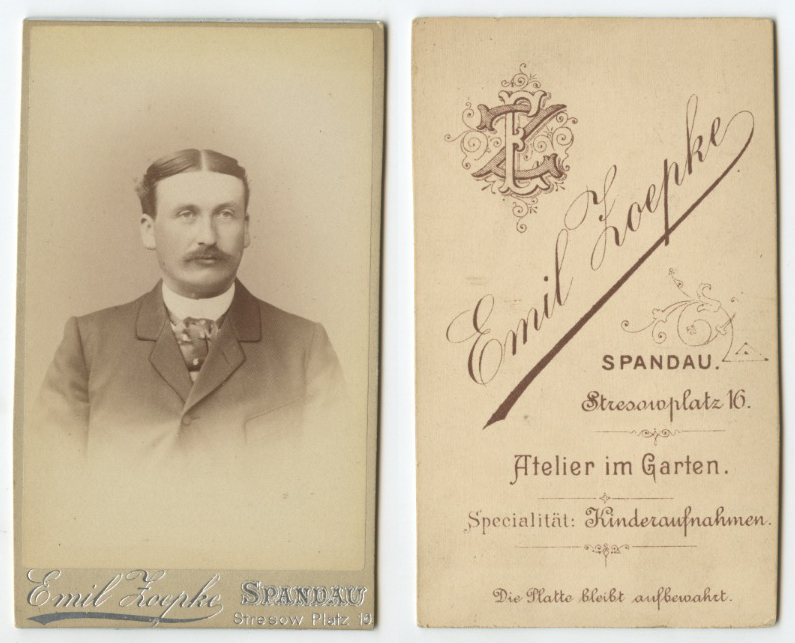 Emil Zoepke SPANDAU
Stresow Platz 16
EZ
Emil Zoepke
SPANDAU.
Stresowplatz 16.
Atelier im Garten.
Specialität: Kinderaufnahmen.
Die Platte bleibt aufbewahrt.